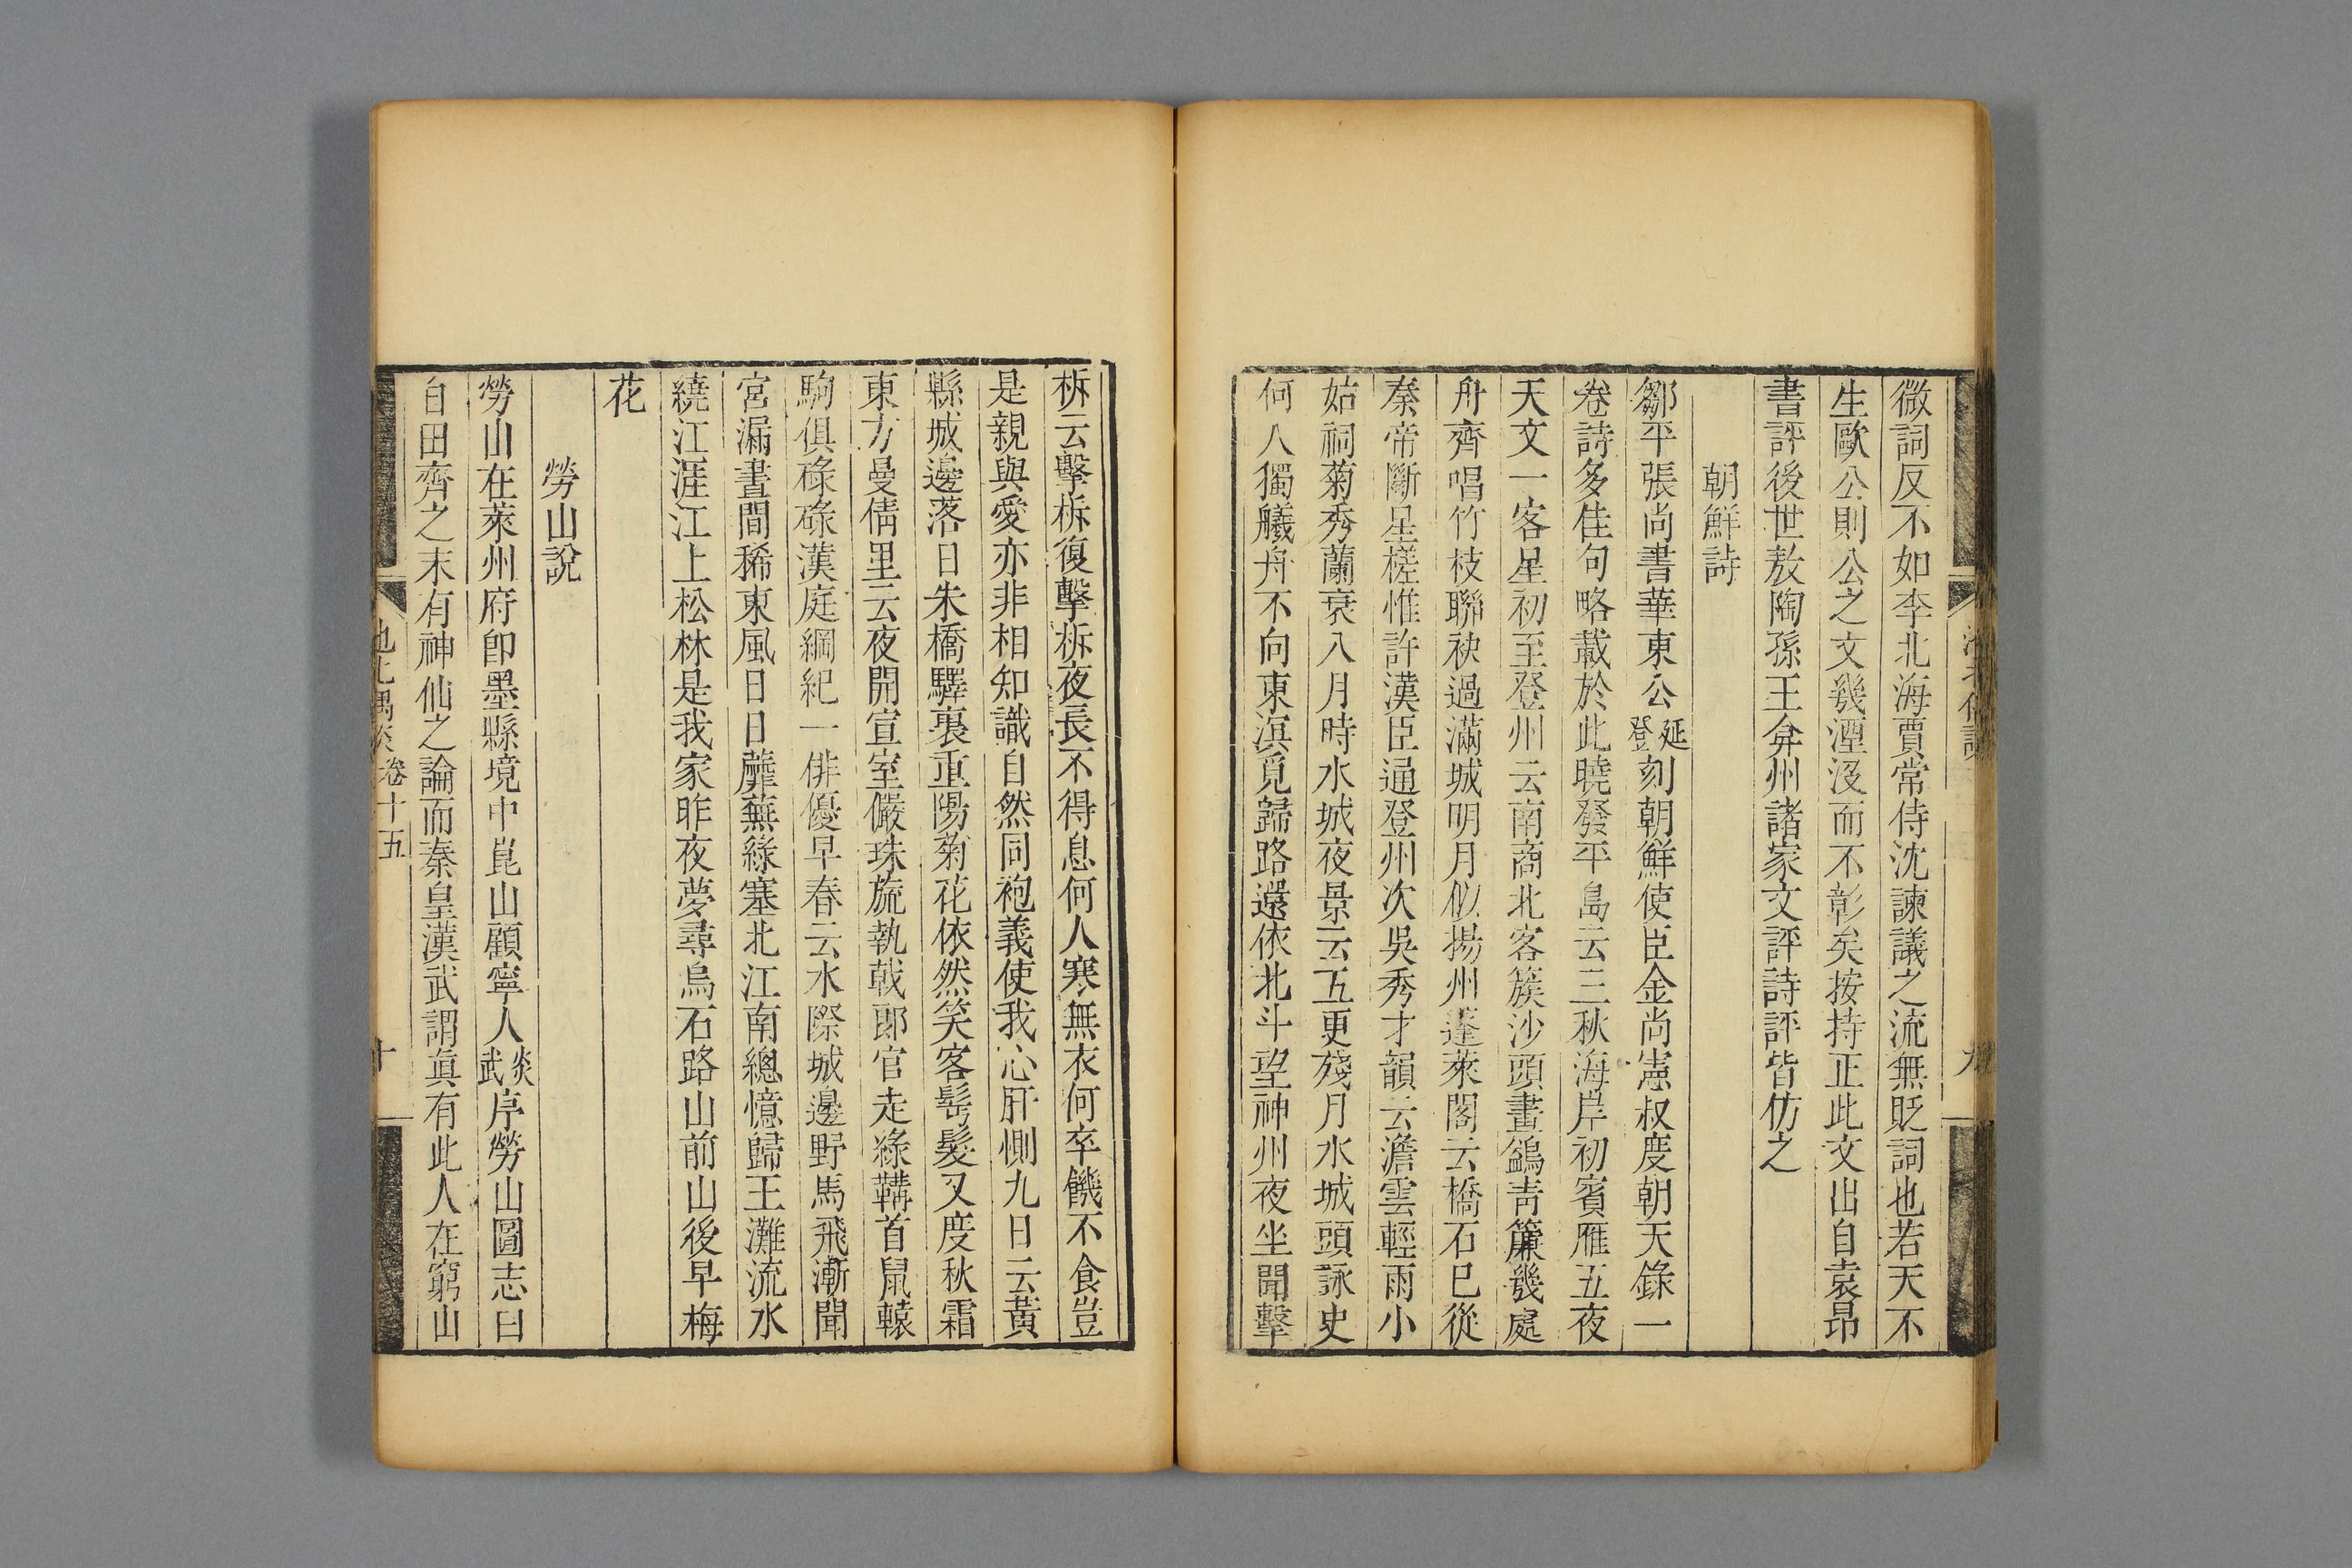 微詞反不如李北海賈常侍沈諫議之流無貶詞也若天不
生歐公則公之文幾湮沒而不彰矣按持正此文出自袁昂
書評後世敖陶孫王弇州諸家文評詩評皆仿之
朝鮮詩
鄒平張尚書華東公延登刻朝鮮使臣金尚憲叔度朝天錄一
卷詩多佳句略載於此曉發平島云三秋海岸初賓雁五夜
天文一客星初至登州云南商北客簇沙頭畫鷁靑簾幾處
舟齊唱竹枝聯袂過滿城明月似揚州蓬萊閣云橋石已從
秦帝斷星槎惟許漢臣通登州次吳秀才韻云澹雲輕雨小
姑祠菊秀蘭衰八月時水城夜景云五更殘月水城頭詠史
何人獨艤舟不向東溟覓歸路還依北斗望神州夜坐聞擊
柝云擊柝復擊柝夜長不得息何人寒無衣何卒饑不食豈
是親與愛亦非相知識自然同袍義使我心肝惻九日云黃
縣城邊落日朱橋驛裏重陽菊花依然笑客髩髮又度秋霜
東方曼倩里云夜開宣室儼珠旒執戟郎官走綠鞲首鼠轅
駒俱碌碌漢庭綱紀一俳優早春云水際城邊野馬飛漸聞
宮漏晝間稀東風日日蘼蕪綠塞北江南總憶歸王灘流水
繞江涯江上松林是我家昨夜夢尋烏石路山前山後早梅
花
勞山說
勞山在萊州府卽墨縣境中崑山顧寧人炎武序勞山圖志曰
自田齊之末有神仙之論而秦皇漢武謂眞有此人在窮山
卷十五
十